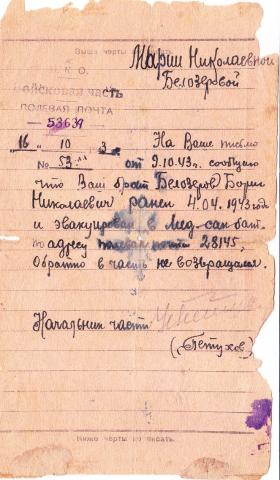 Выше черты не писать.
Марии Николаевной
Белозеровой
Войсковая часть
ПОЛЕВАЯ ПОЧТА
— 53639
"16" 10 3 г. На Ваше письмо
№ 53 от 9.10.43 г. сообщаю
что Ваш брат Белозеров Борис
Николаевич ранен 4.04.1943 года
и эвакуирован в Мед-сан-бат.
адресу полевая почта 28145,
Обратно в часть не возвращался.
Начальник части
(Петухов)
Ниже черты не писать.